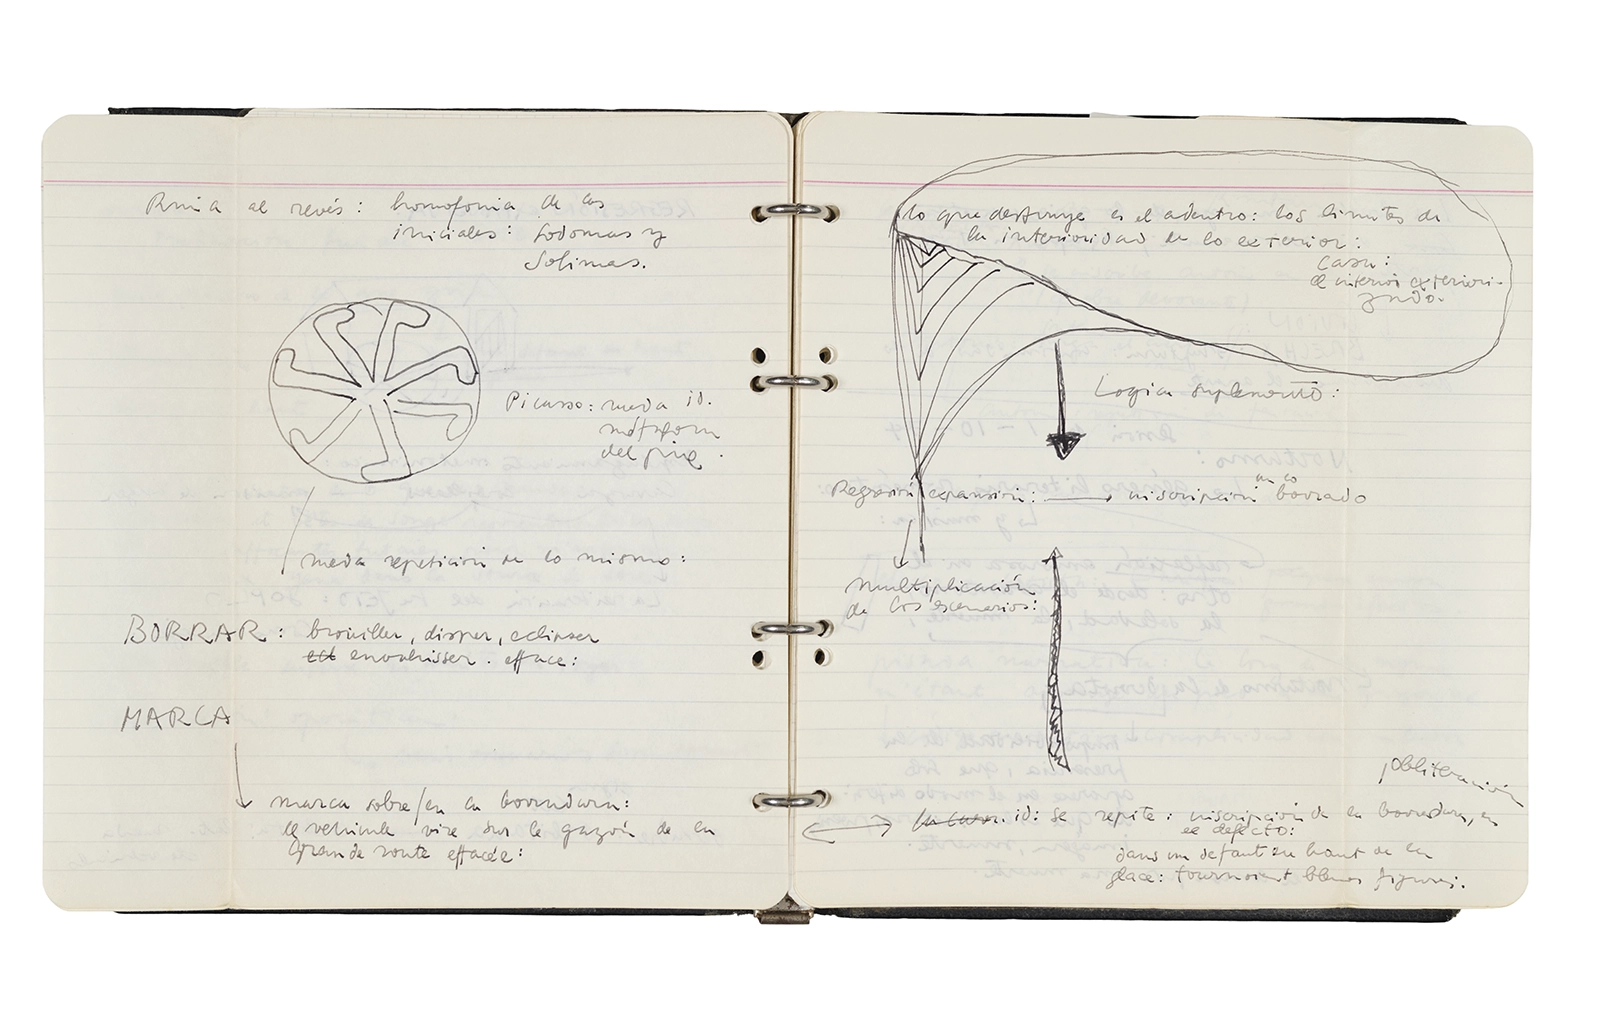 Rima al revés: homofonia de las
iniciales: Sodomas y
Solimas.
Picasso: rueda id.
metáfora
del
rueda repetición de lo mismo:
BORRAR: brouiller, disper, eclipser
est envahisser. efface:
MARCA
marca sobre/en la borradura:
le vehicule vire sur le gazón de la
grande route effacée:
lo que destruye es el adentro: los limites de
la interioridad de lo exterior:
casa:
el interior exteriori-
zado.
Logica suplemento:
Regresión/expansión: → inscripción en lo borrado
multiplicación
de los escenarios:
obliteración
la casa. id: se repite: inscripción de la borradura, en
el defecto:
dans un defaut au haut de la
glace: figures.